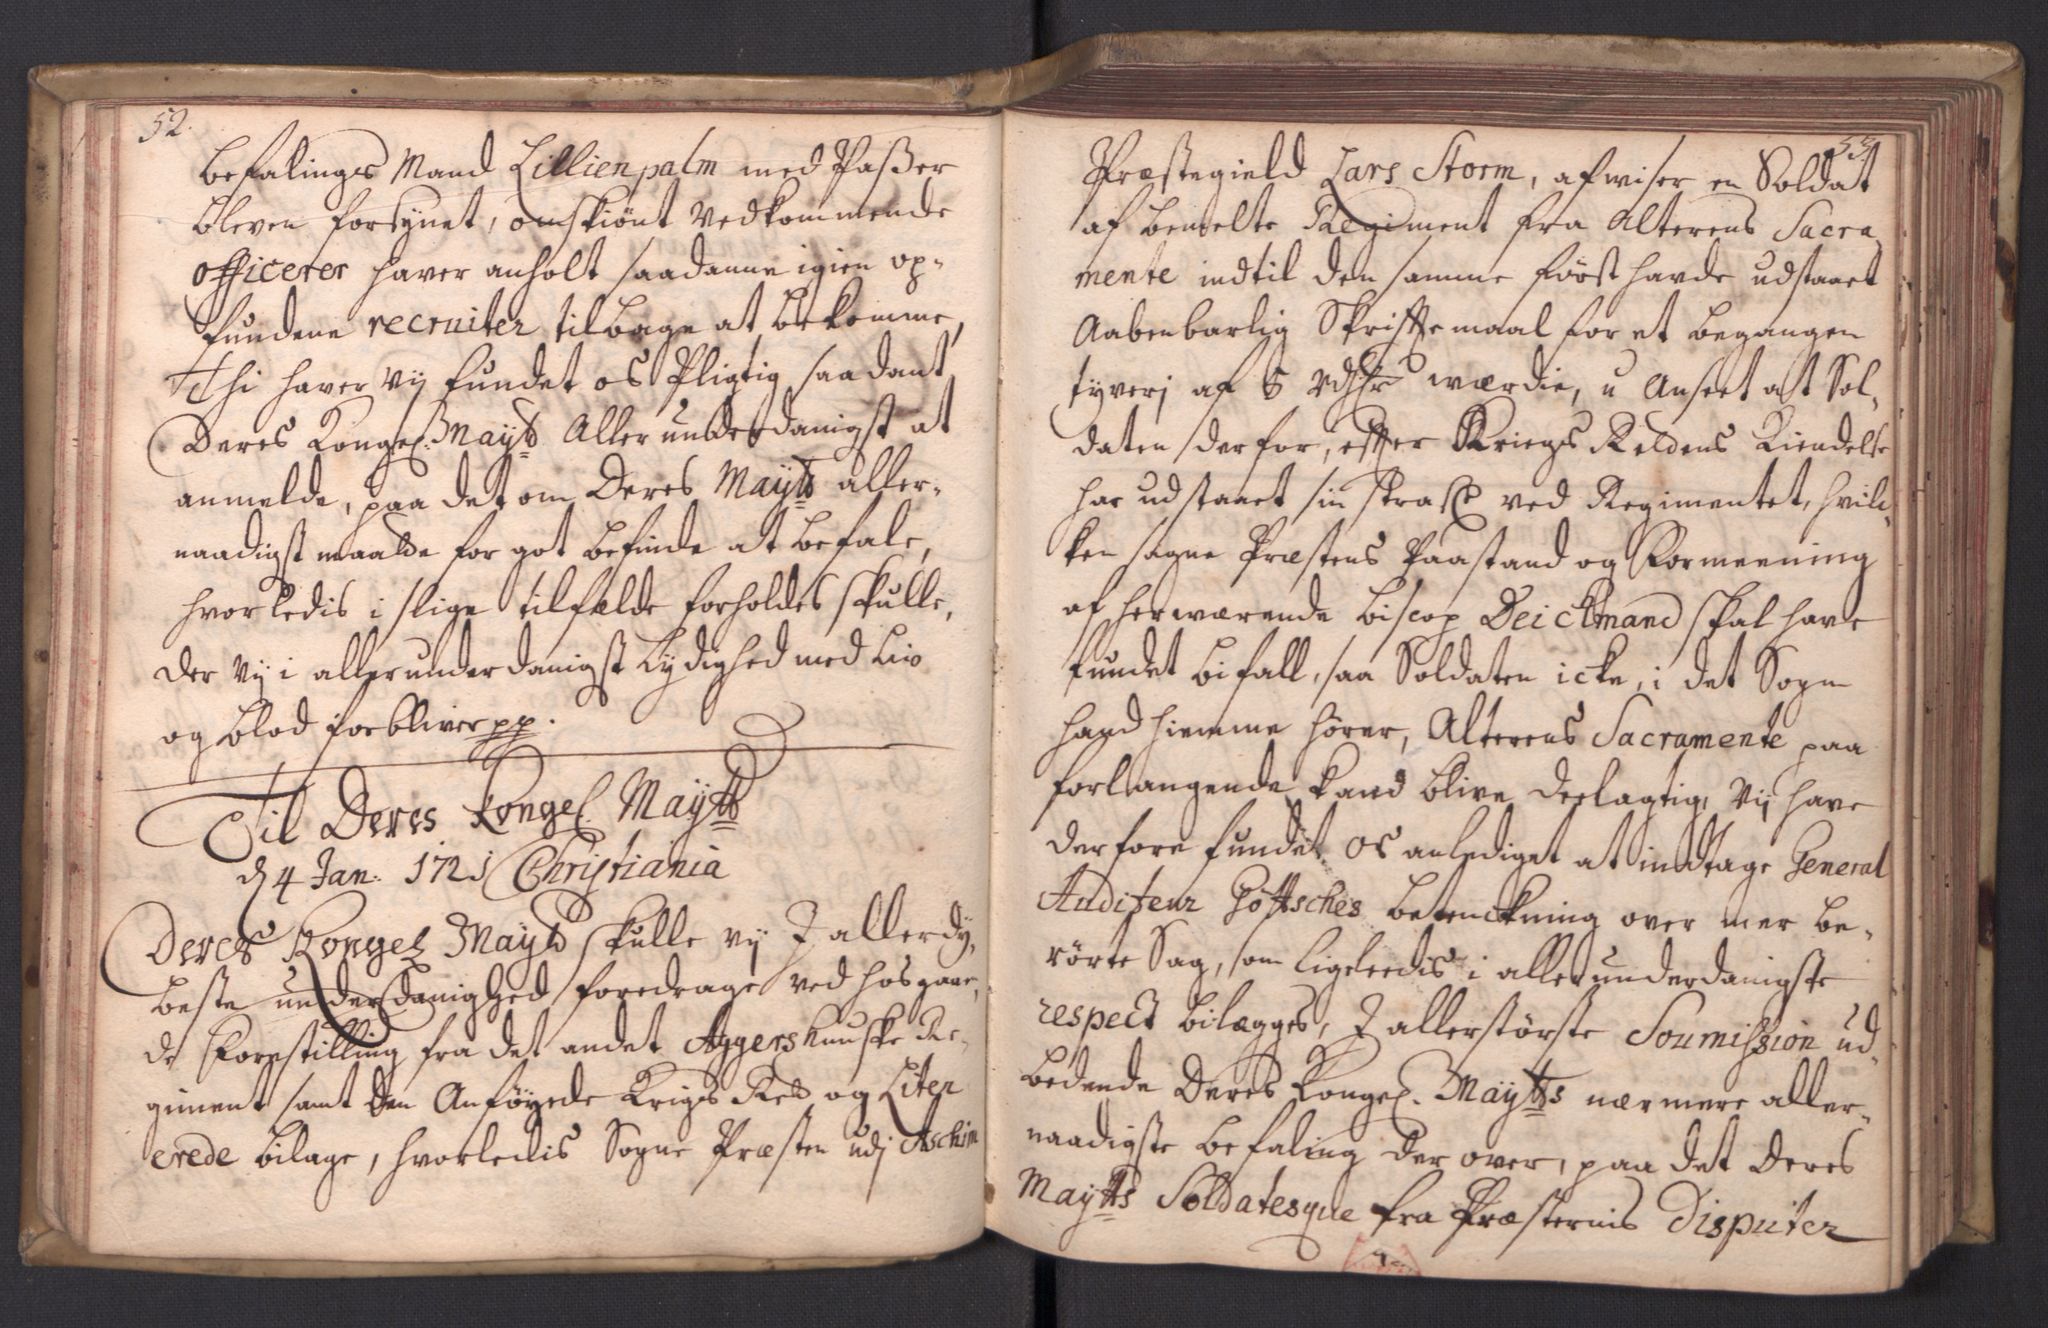 52.
befalings Mand Lillienpalm med Passer
bleven forsynet, omskiönt Vedkommende
officerer haver anholt saadanne igien op-
fundene recruiter tilbage at bekomme,
Thi haver vij fundet os Pligtig saadant
Deres Kongel: Mayts Allerunderdanigst at
anmelde, paa det om Deres Mayts aller-
naadigst maatte for got befinde at befale,
hvorledis i slige tilfælde forholdes skulle,
der vij i allerunderdanigst Lydighed med Liv
og blod forbliver pp.
Til Deres Kongel. Maytts
d 4 Jan: 1721 Christiania
Deres Kongel Mayts skulle vij J allerdy-
beste underdanighed foredrage ved hosgaaen-
de Forestilling fra det andet Aggershuuske Re-
giment samt den Anföyede Krigs Ret og Liter
erede bilage, hvorledis Sogne Præsten udj Aschim
53
Præstegield Lars Storm, afwiser en Soldat
af bemelte Regiment fra Alterens Sacra
mente indtil den samme först havde udstaaet
Aabenbarlig Skriftemaal for et begangen
tyverj af 5 Rdlr wærdie, u Anseet at Sol-
daten derfor, efter Kriegs Rettens Kiendelse
har udstaaet sin straff ved Regimentet, hvil-
ken sagne Præstens Paastand og Formeening
af herværende biscop Deichmand skal have
fundet bifall, saa Soldaten icke, i det Sogn
hand hiemme hörer, Alterens Sacramente paa
forlangende kand blive deelagtig, Vij have
derfore fundet os anlediget at indtage General
Auditeur Göttsches betenckning over mer be-
rörte Sag, som ligeleedis i allerunderdanigste
respect bilægges, J allerstörste Soumission ud-
bedende Deres Kongel. Maytts nærmere aller-
naadigste befaling der over, paa det Deres
Maytts Soldatesque fra Præsternis Disputer